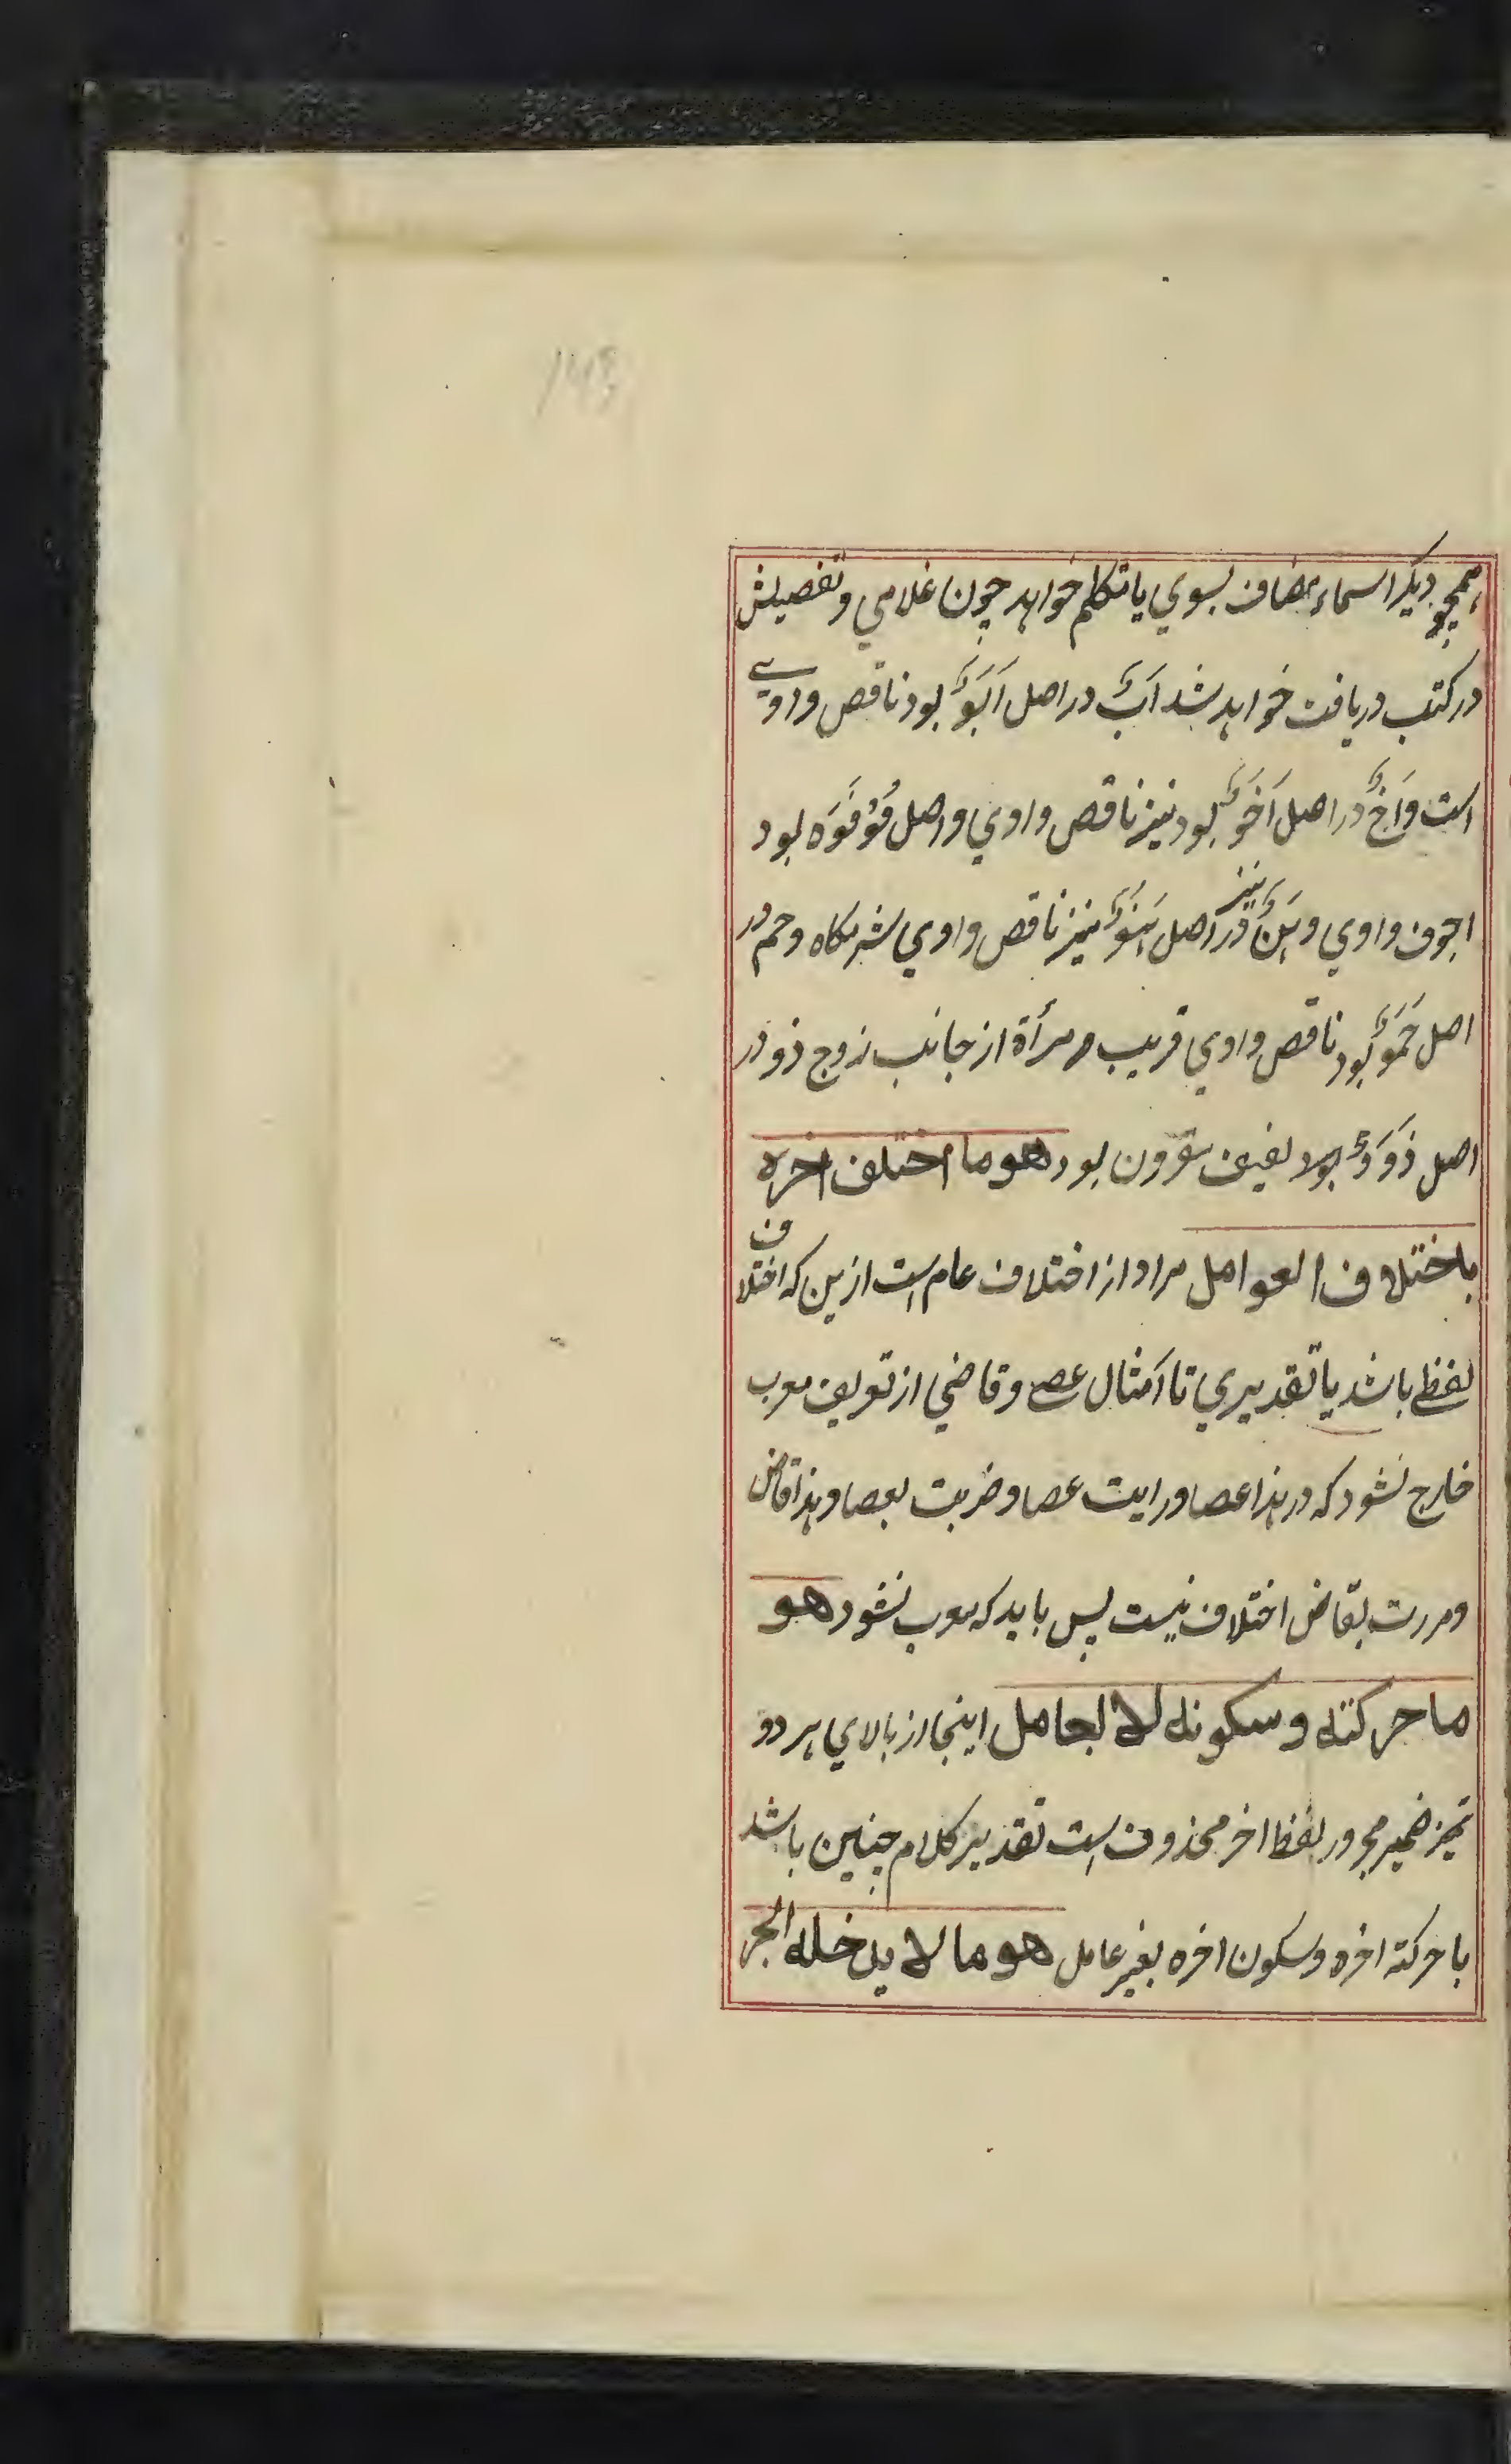 همچو دیگر اسماء مضاف بسوي یا تکلم خواهد چون غلامي و تفصیلش
در کتب دریافت خواهد شد اَبٌ در اصل اَبَوٌ بود ناقص واوي
است و اَخٌ در اصل اَخَوٌ بود نیز ناقص واوي و اصل فُوْ فَوَه بود
اجوف واوي و هَنٌ نیز در اصل هَنَوٌ نیز ناقص واوي شرمکاه و حم در
اصل حَمَوٌ بود ناقص واوي قریب مرأة از جانب زوج ذو در
اصل ذَوَوٌ بود لفیف مقرون بود هو ما اختلف اخره
باختلاف العوامل مراد از اختلاف عام است ازین که اختلاف
لفظے باشد یا تقدیري تا اَمثال عصے و قاضي از تعریف معرب
خارج نشود که در هذا عصا و رایت عصا و ضربت بعصا و هذا قاض
و مررت بقاض اختلاف نیست پس باید که معرب نشود هو
ما حرکته و سکونه لا لعامل اینجا از بالاي هر دو
تمیز ضمیر مجرور لفظ اخر محذوف است تقدیر کلام چنین باشد
با حرکة اخره و سکون اخره بغیر عامل هو ما لا یدخله الجر